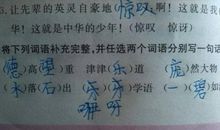 让先辈的英灵自豪地(惊叹)啊！这就
华！这就是中华的少年！(惊叹 惊讶)
将下列词语补充完整,并任选两个词语分别写一句话
(德)高(望)重 津津(乐)道 (庞)然大物
(水)落(石)出 (牙)(牙)学语 (一)(碧)
咿 呀